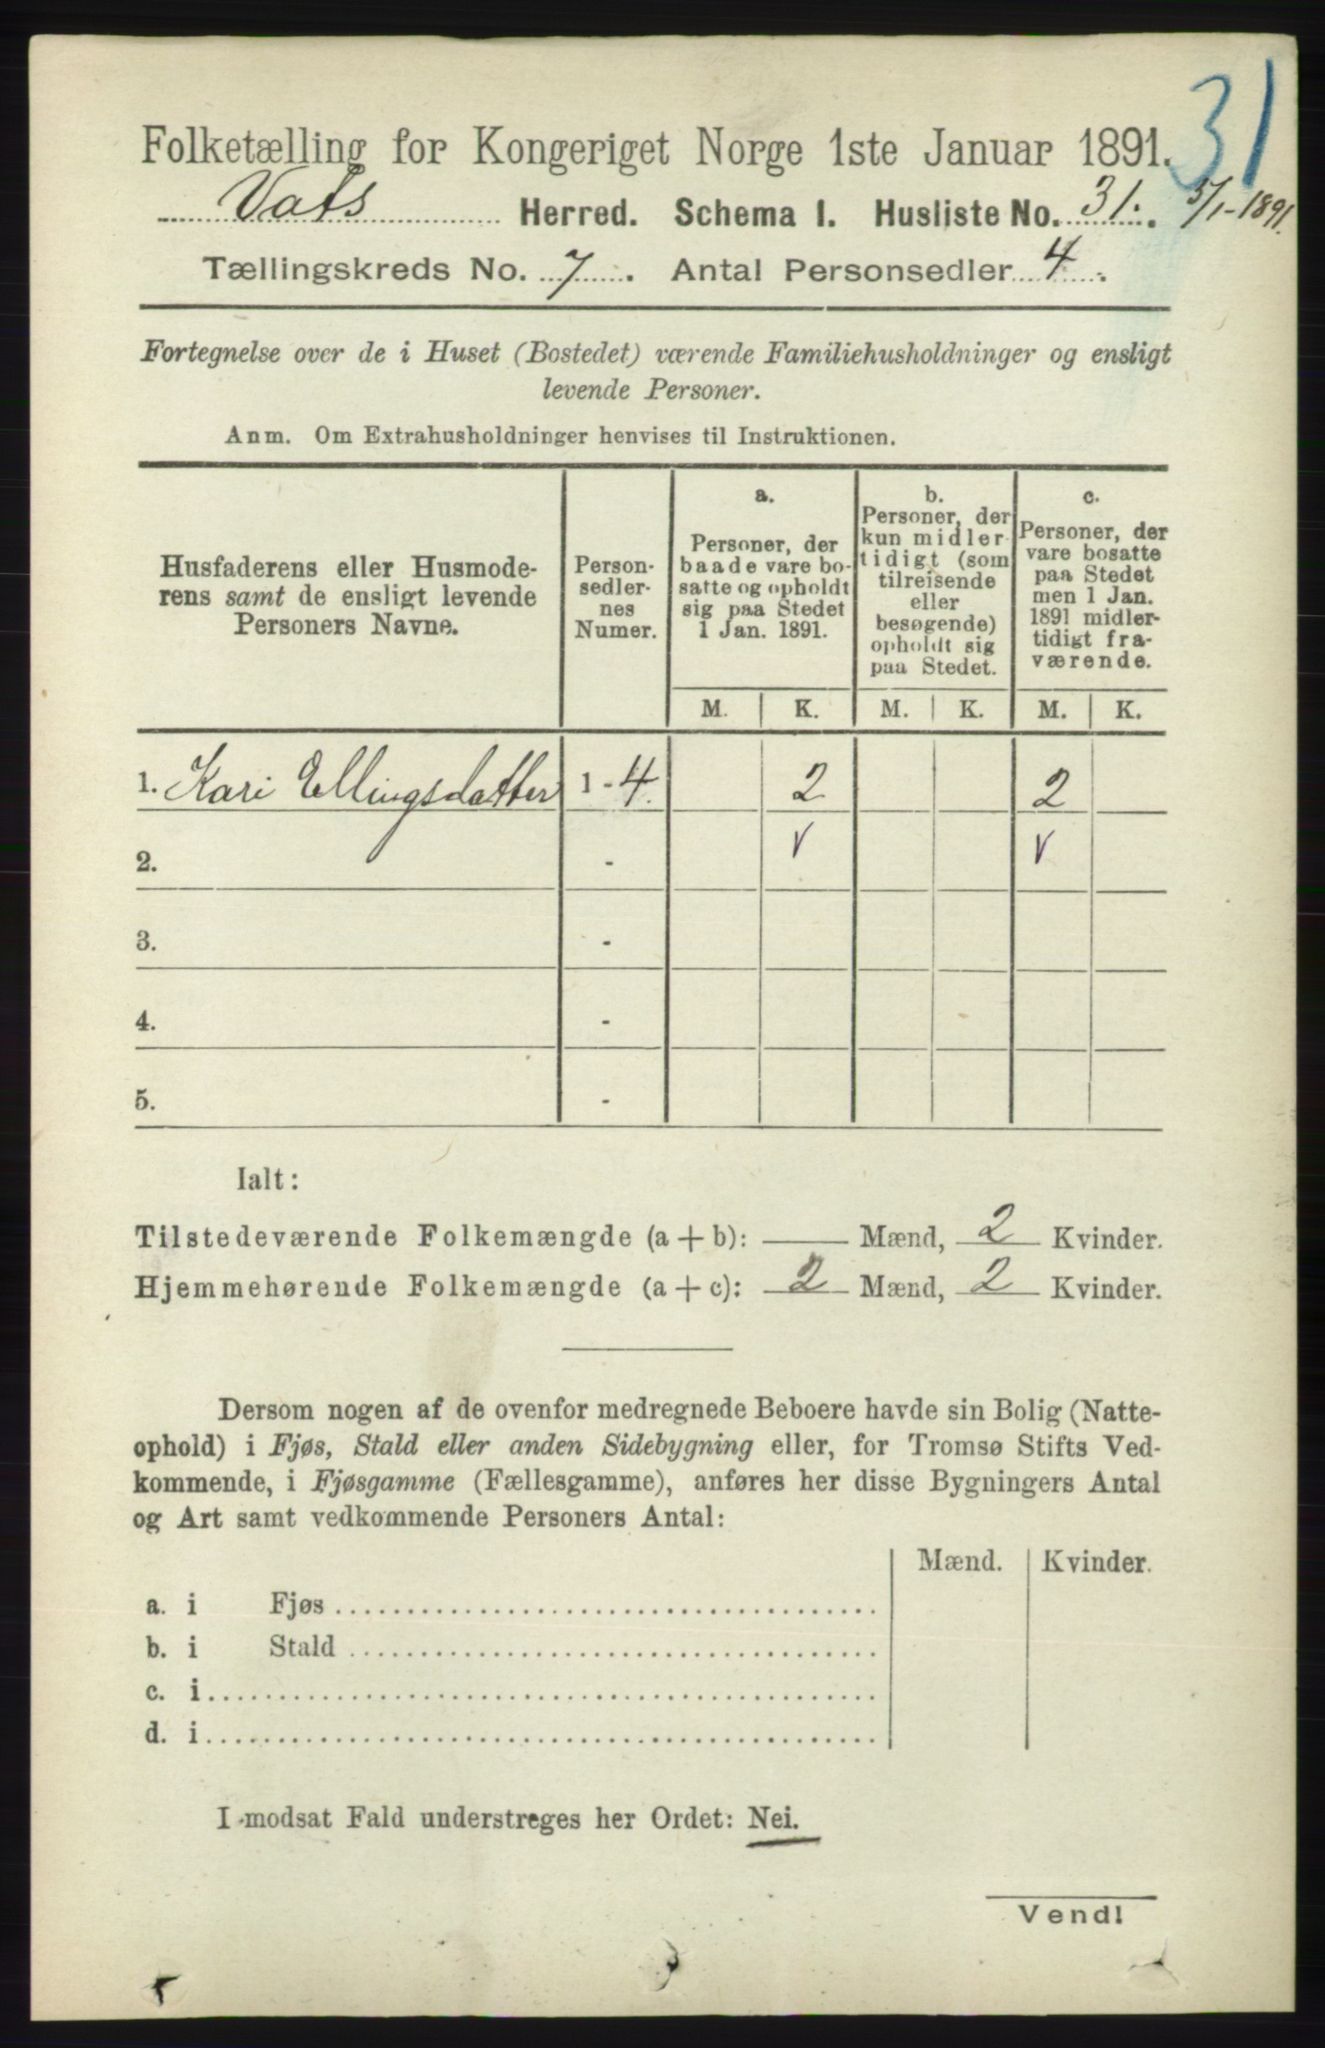 31
Folketælling for Kongeriget Norge 1ste Januar 1891.
Vats Herred. Schema I. Husliste No. 31. 5/1-1891.
Tællingskreds No. 7. Antal Personsedler 4.
Fortegnelse over de i Huset (Bostedet) værende Familiehusholdninger og ensligt
levende Personer.
Anm. Om Extrahusholdninger henvises til Instruktionen.
Husfaderens eller Husmode-
rens samt de ensligt levende
Personers Navne.
Person-
sedler-
nes
Numer.
a.
Personer, der
baade vare bo-
satte og opholdt
sig paa Stedet
1 Jan. 1891.
b.
Personer, der
kun midler-
tidigt (som
tilreisende
eller
besøgende)
opholdt sig
paa Stedet.
c.
Personer, der
vare bosatte
paa Stedet
men 1 Jan.
1891 midler-
tidigt fra-
værende.
M. K. M. K. M. K.
1. Kari Ellingsdatter 1 - 4. 2 2
2. - V V
3. -
4. -
5. -
Ialt:
Tilstedeværende Folkemængde (a + b): — Mænd, 2 Kvinder.
Hjemmehørende Folkemængde (a + c): 2 Mænd, 2 Kvinder.
Dersom nogen af de ovenfor medregnede Beboere havde sin Bolig (Natte-
ophold) i Fjøs, Stald eller anden Sidebygning eller, for Tromsø Stifts Ved-
kommende, i Fjøsgamme (Fællesgamme), anføres her disse Bygningers Antal
og Art samt vedkommende Personers Antal:
Mænd. Kvinder.
a. i Fjøs
b. i Stald
c. i
d. i
I modsat Fald understreges her Ordet: Nei.
Vend!